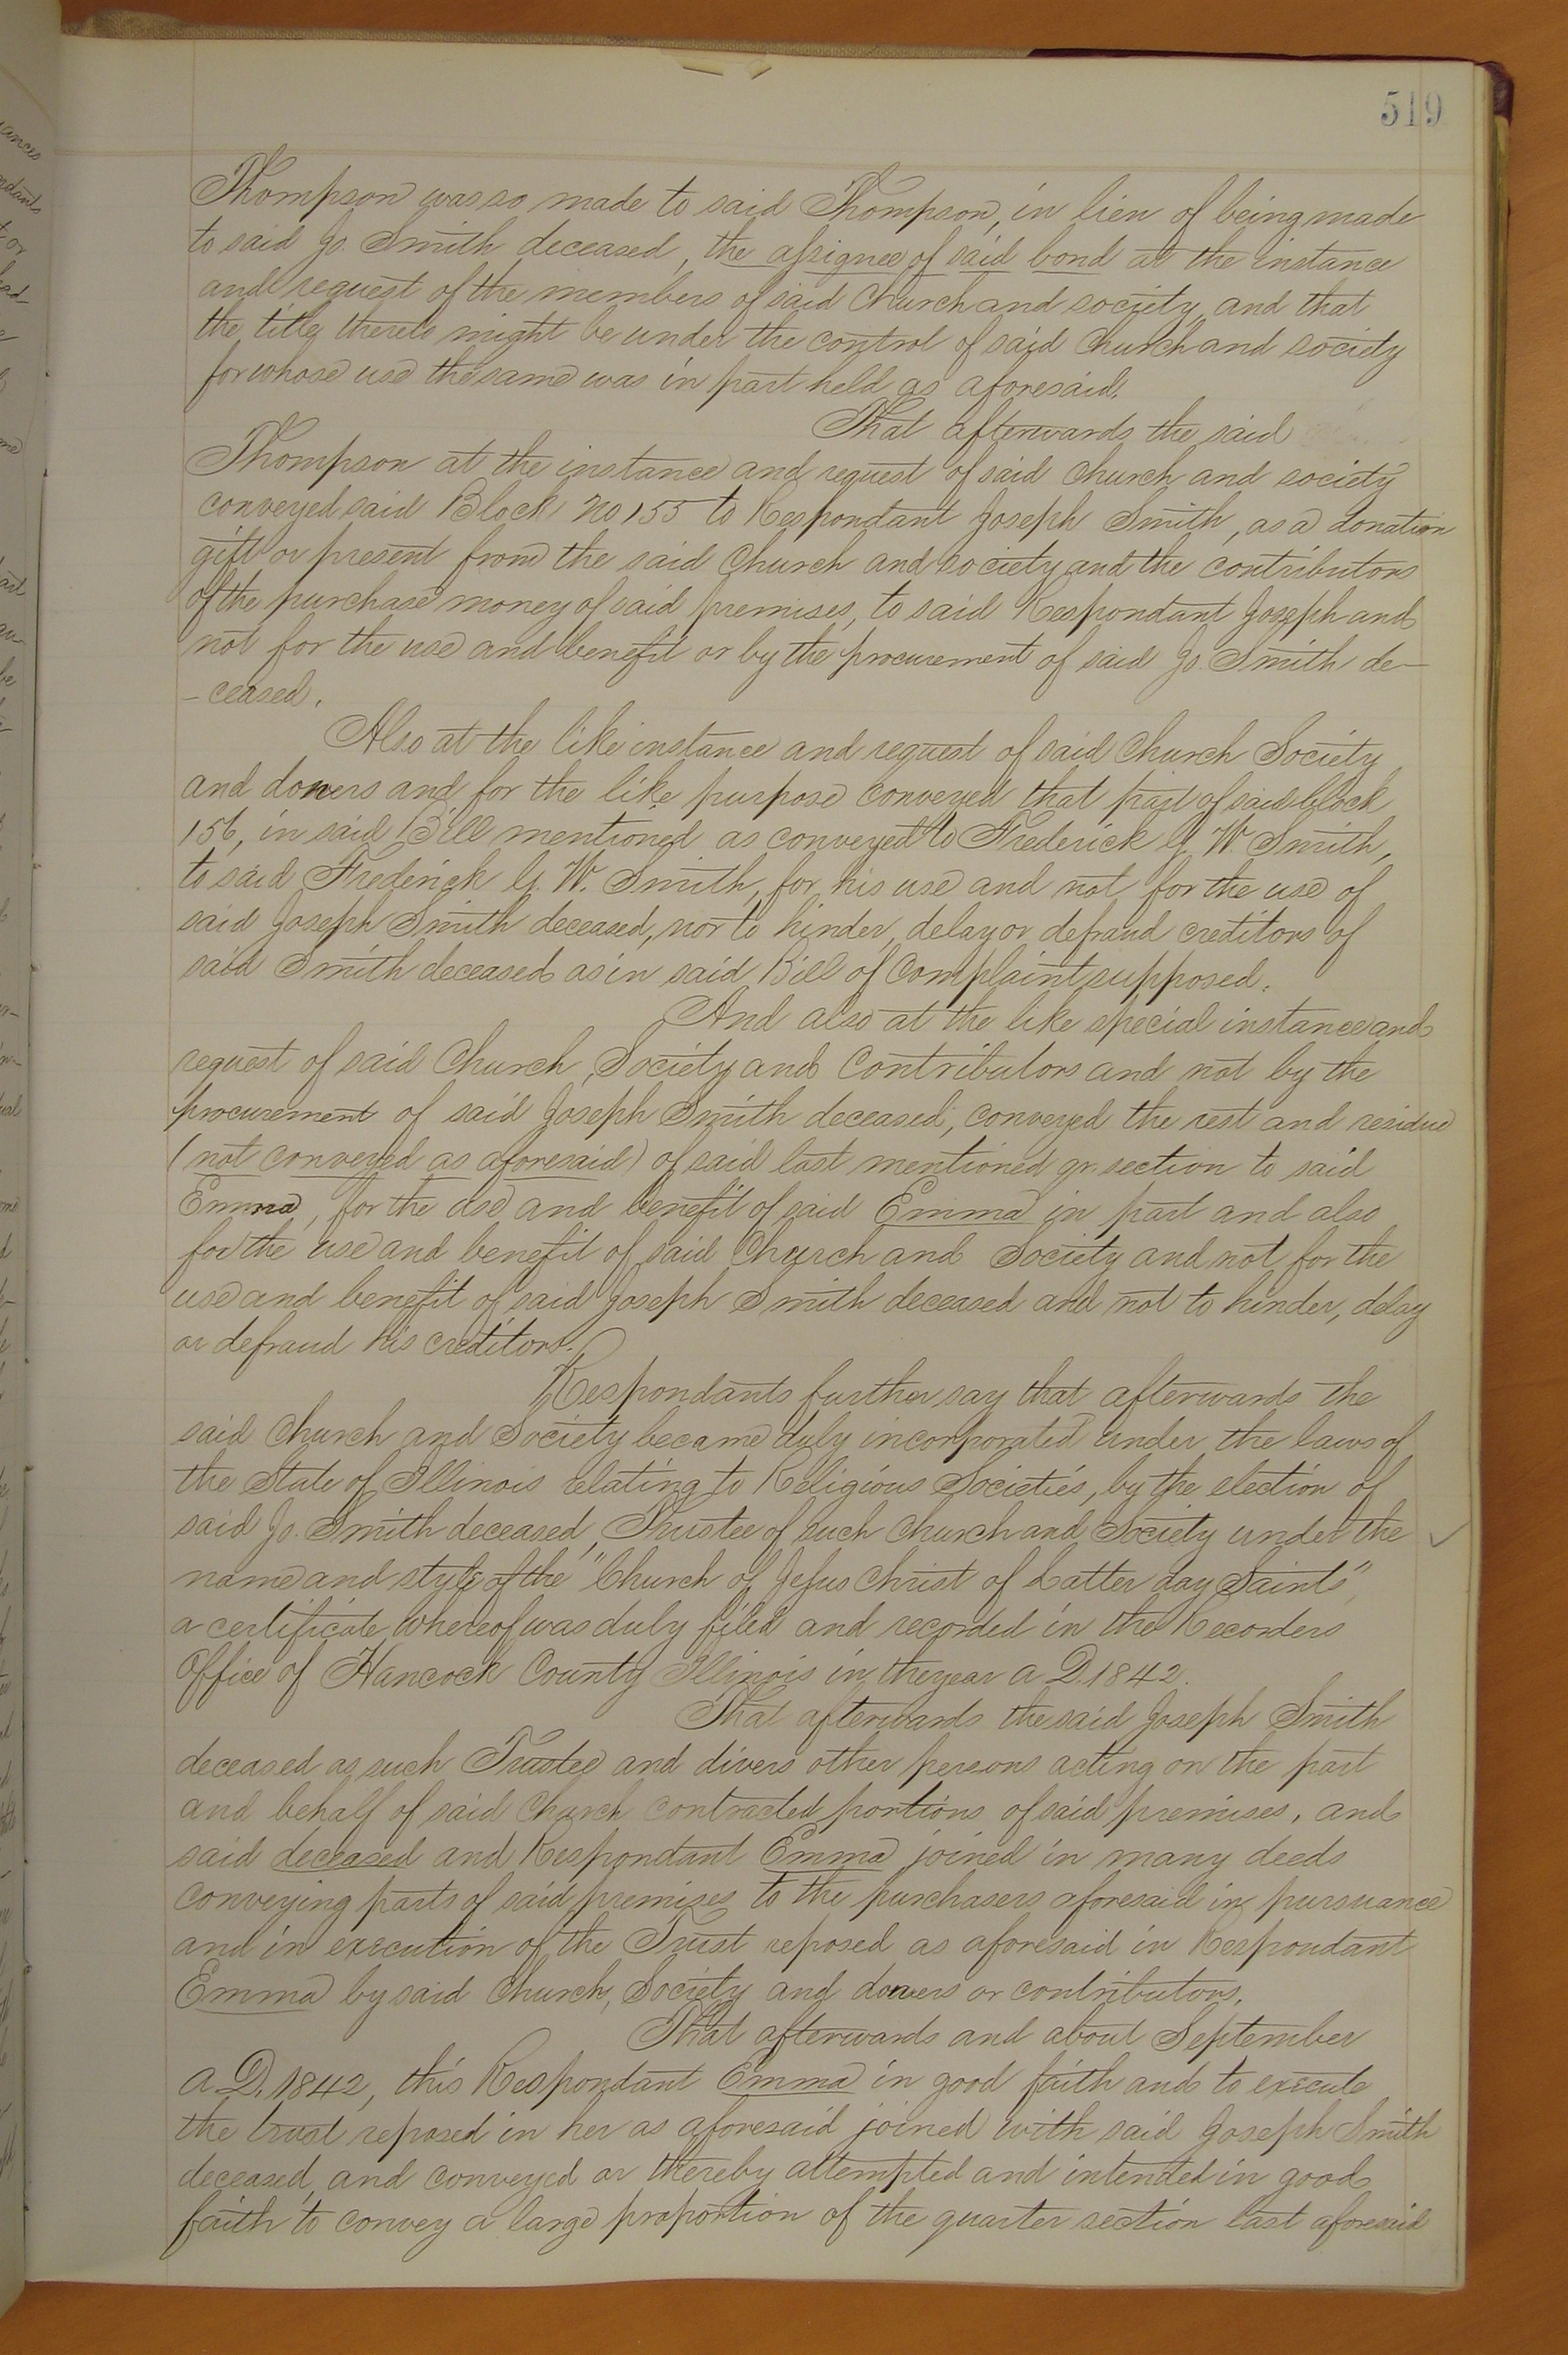 519
Thompson was so made to said Thompson, in lien of being made
to said Jo. Smith deceased, the assignee of said bond at the instance
and request of the members of said Church and society, and that
the title thereto might be under the control of said Church and society
for whose use the same was in part held as aforesaid.
That afterwards the said
Thompson at the instance and request of said Church and society
conveyed said Block No 155 to Respondant Joseph Smith, as a donation
gift or present from the said Church and society and the contributors
of the purchase money of said premises, to said Respondant Joseph and
not for the use and benefit or by the procurement of said Jo. Smith de-
-ceased.
Also at the like instance and request of said Church Society
and doners and for the like purpose conveyed that part of said block
156, in said Bill mentioned as conveyed to Frederick G. W. Smith,
to said Frederick G. W. Smith, for his use and not for the use of
said Joseph Smith deceased, nor to hinder, delay or defraud creditors of
said Smith deceased as in said Bill of Complaint supposed.
And also at the like special instance and
request of said Church, Society and Contributors and not by the
procurement of said Joseph Smith deceased, conveyed the rest and residue
(not conveyed as aforesaid) of said last mentioned qr. section to said
Emma, for the use and benefit of said Emma in part and also
for the use and benefit of said Church and Society and not for the
use and benefit of said Joseph Smith deceased and not to hinder, delay
or defraud his creditors.
Respondants further say that afterwards the
said Church and Society became duly incorporated under the laws of
the State of Illinois relating to Religious Societies, by the election of
said Jo. Smith deceased, Trustee of such Church and Society under the
name and style of the "Church of Jesus Christ of Latter day Saints",
a certificate whereof was duly filed and recorded in the Recorders
Office of Hancock County Illinois in the year A D. 1842.
That afterwards the said Joseph Smith
deceased as such Trustee and divers other persons acting on the part
and behalf of said Church contracted portions of said premises, and
said deceased and Respondant Emma joined in many deeds
conveying parts of said premises to the purchasers aforesaid in pursuance
and in execution of the Trust reposed as aforesaid in Respondant
Emma by said Church, Society and doners or contributors.
That afterwards and about September
A. D. 1842, this Respondant Emma in good faith and to execute
the trust reposed in her as aforesaid joined with said Joseph Smith
deceased, and conveyed or thereby attempted and intended in good
faith to convey a large proportion of the quarter section last aforesaid